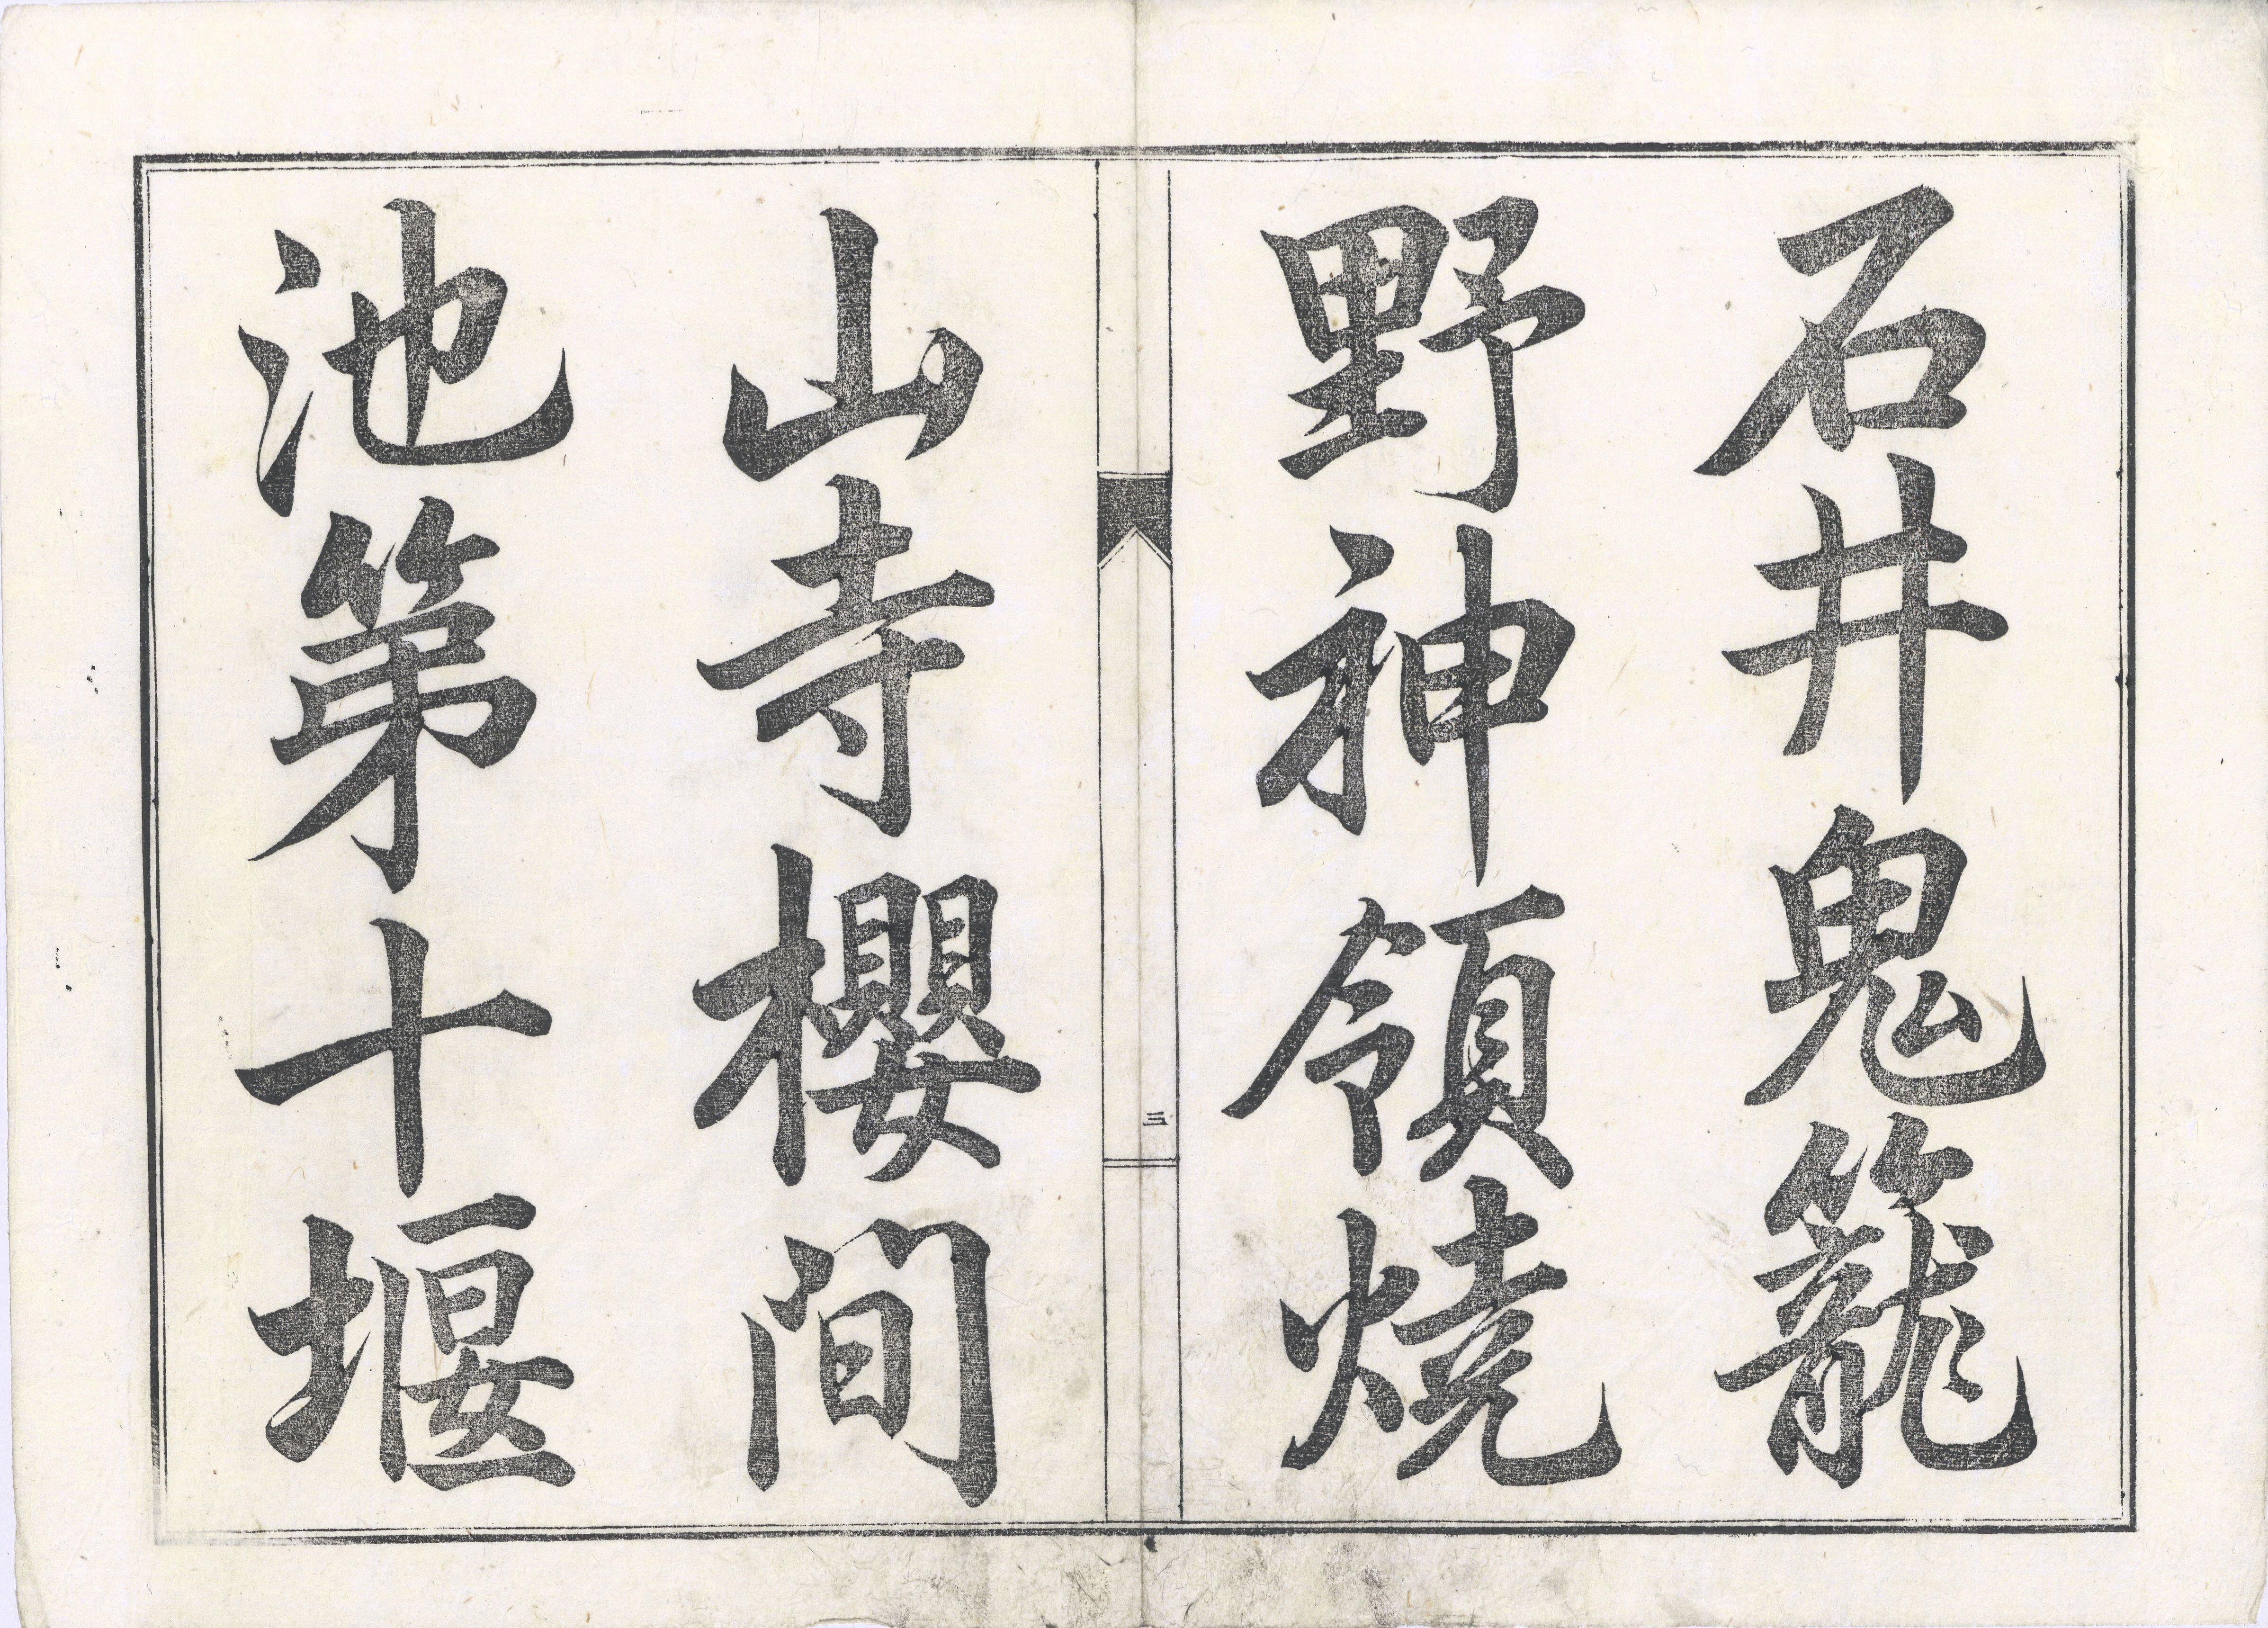 石井鬼籠
野神領燒
三
山寺櫻間
池第十堰